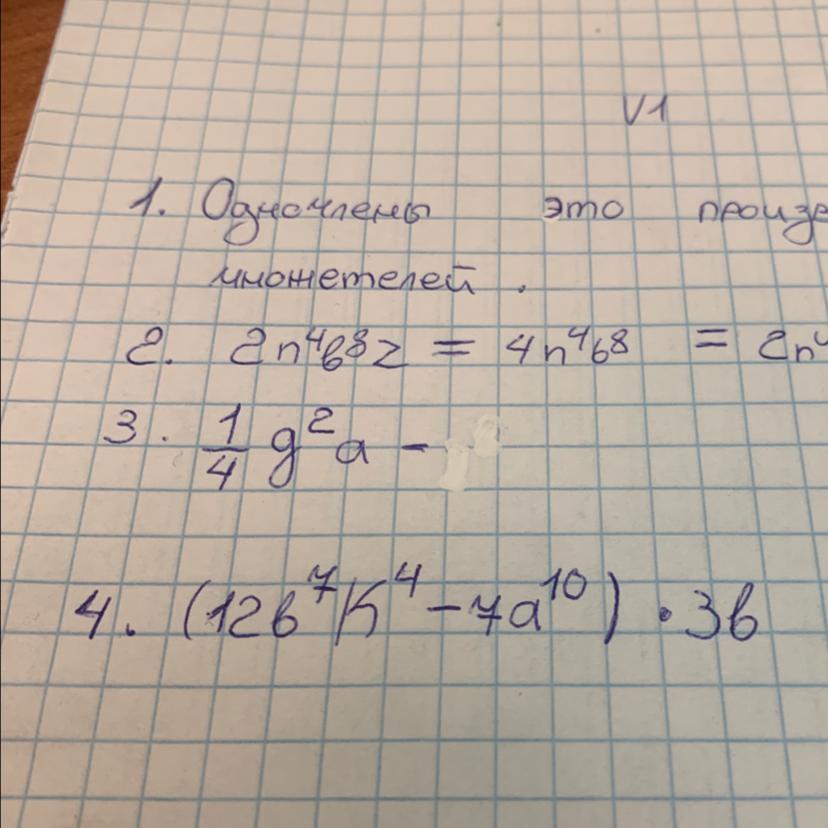 V1
1. Одночлены это
множетелей .
2. 2n⁴b⁸z = 4n⁴b⁸ = 2n⁴
3. 1/4 g²a -
4. (12b⁷k⁴ - 7a¹⁰) · 3b